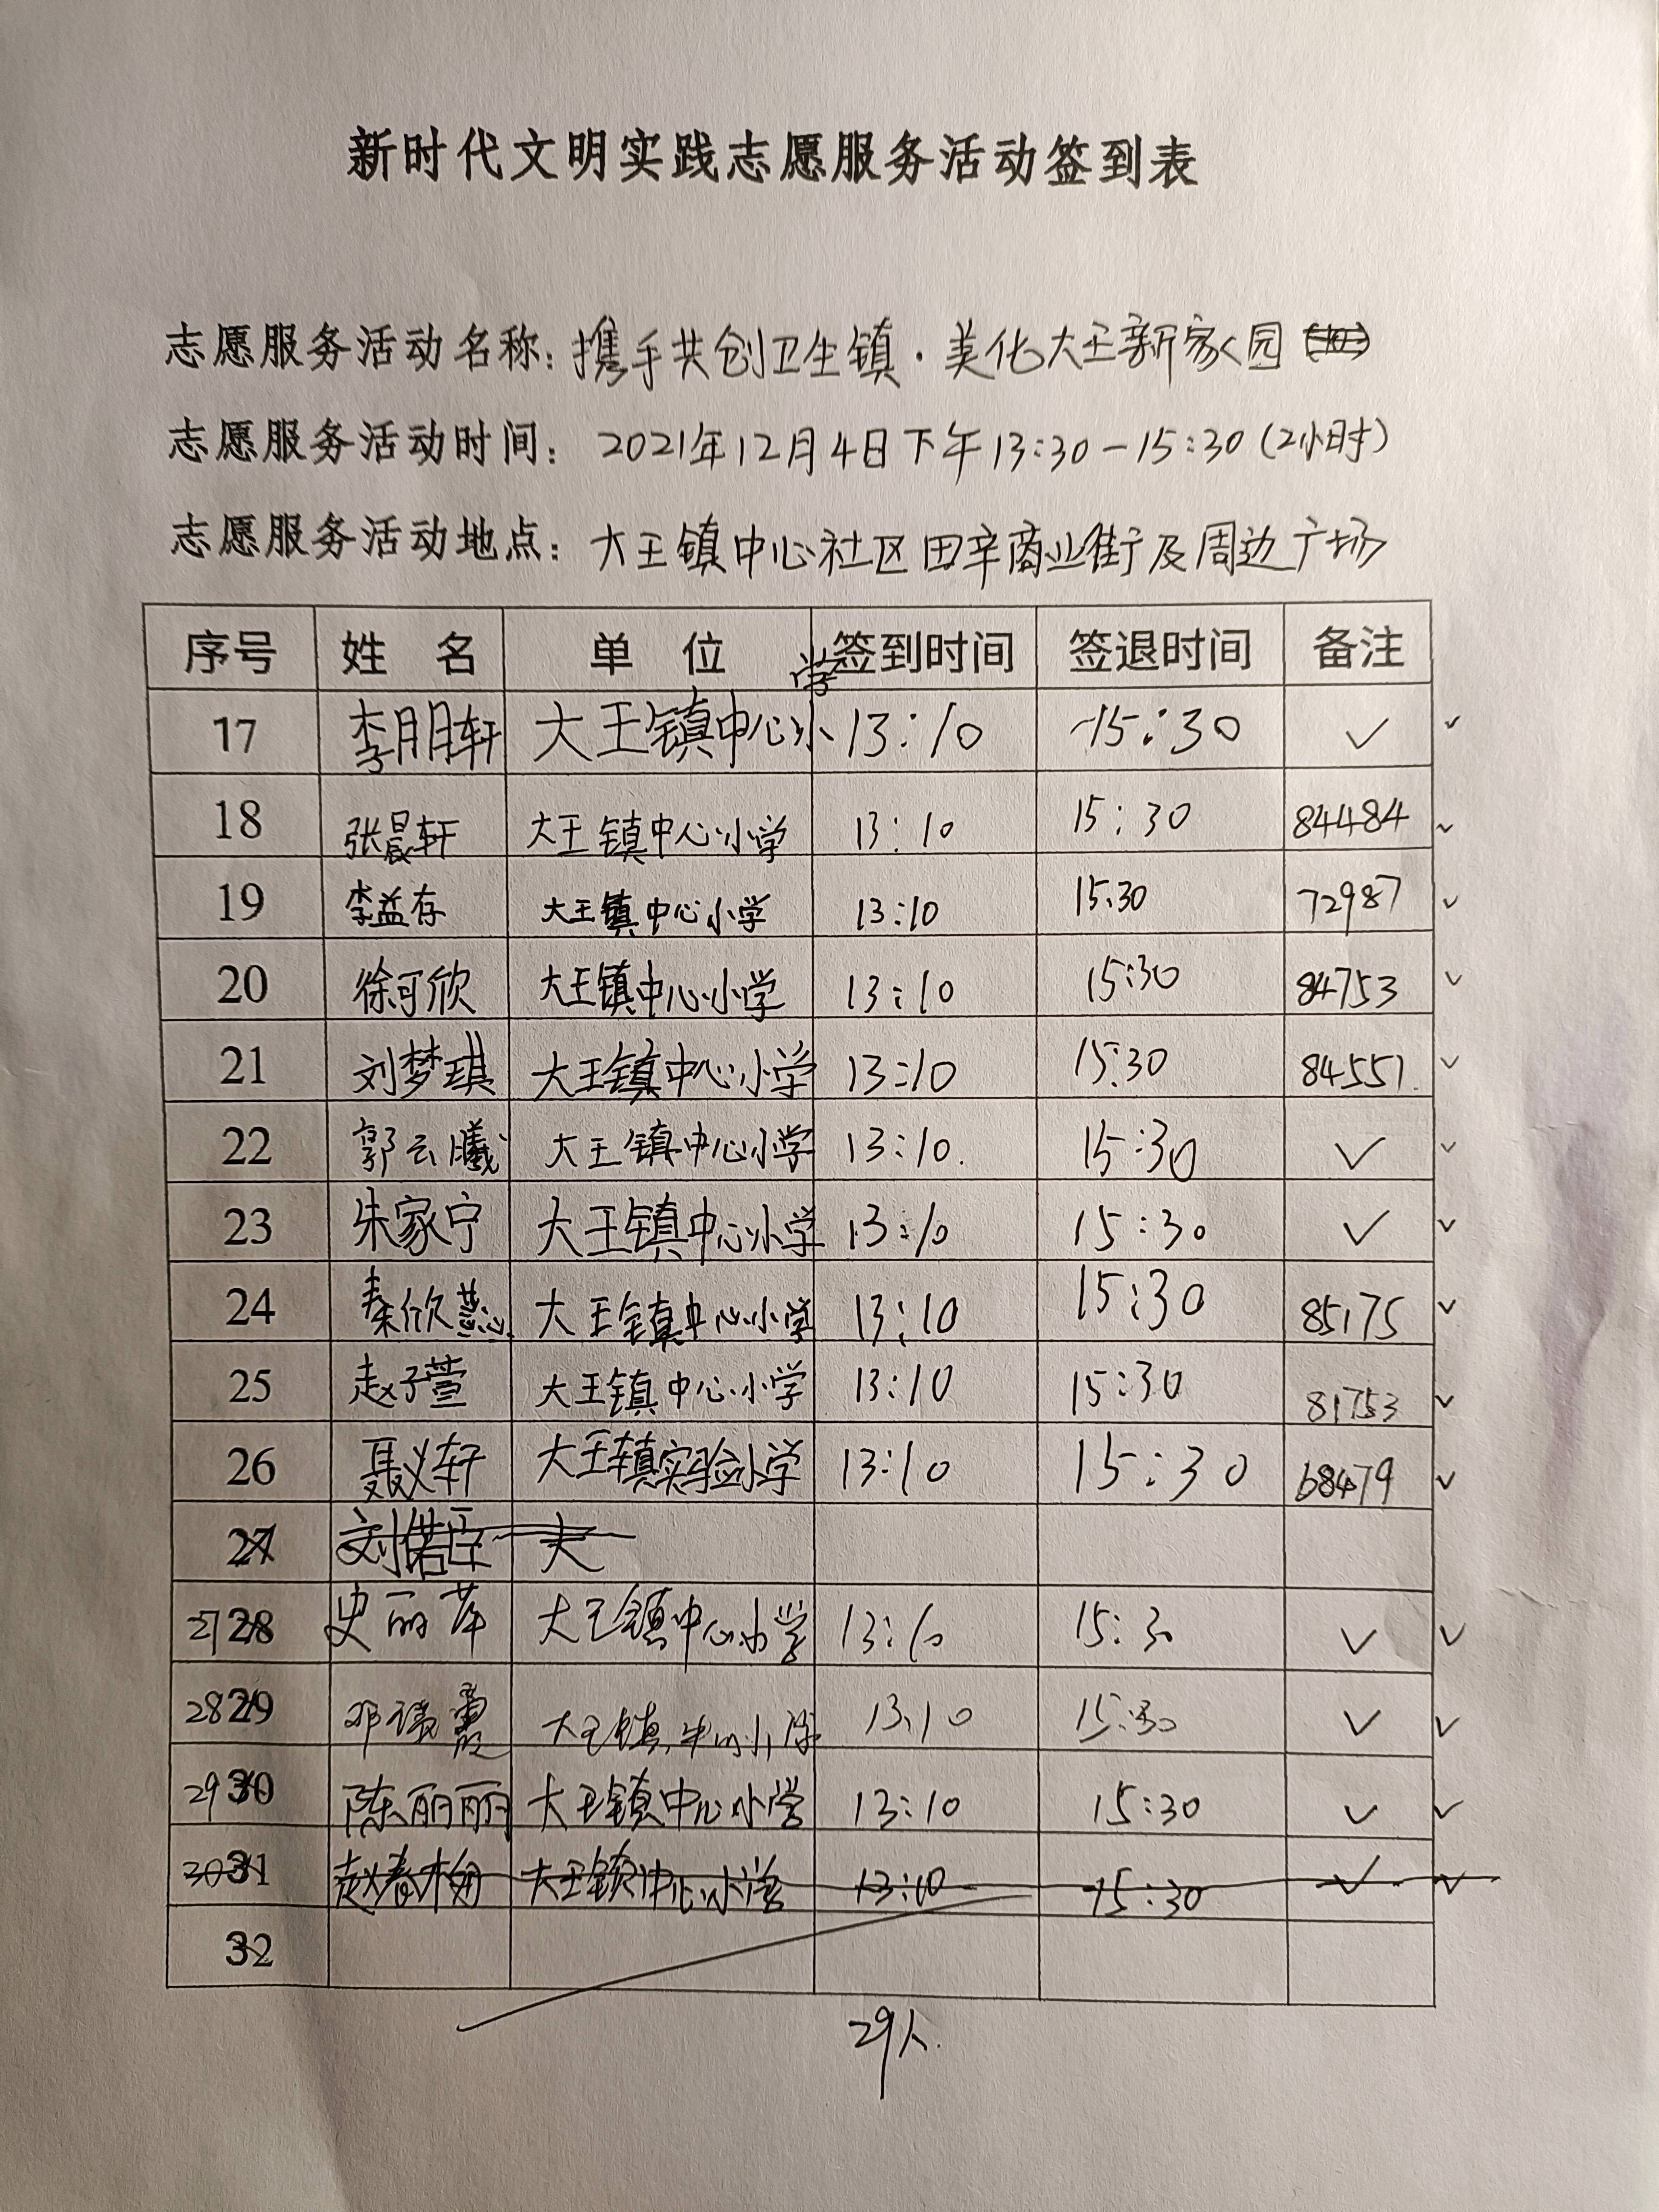 新时代文明实践志愿服务活动签到表
志愿服务活动名称：携手共创卫生镇·美化大王新家园
志愿服务活动时间：2021年12月4日下午13:30-15:30(2小时)
志愿服务活动地点：大王镇中心社区田辛商业街及周边广场
序号 姓 名 单 位 签到时间 签退时间 备注
17 李明轩 大王镇中心小学 13:10 15:30 ✓ ✓
18 张晨轩 大王镇中心小学 13:10 15:30 84484 ✓
19 李益存 大王镇中心小学 13:10 15:30 72987 ✓
20 徐可欣 大王镇中心小学 13:10 15:30 84753 ✓
21 刘梦琪 大王镇中心小学 13:10 15:30 84551. ✓
22 郭云曦 大王镇中心小学 13:10. 15:30 ✓ ✓
23 朱家宁 大王镇中心小学 13:10 15:30 ✓ ✓
24 秦欣蕊 大王镇中心小学 13:10 15:30 85175 ✓
25 赵子萱 大王镇中心小学 13:10 15:30 81753 ✓
26 聂义轩 大王镇实验小学 13:10 15:30 68479 ✓
27 刘偌臣 大
27 28 史丽苹 大王镇中心小学 13:10 15:30 ✓ ✓
28 29 邓 霞 大王镇中心小学 13:10 15:30 ✓ ✓
29 30 陈丽丽 大王镇中心小学 13:10 15:30 ✓ ✓
30 31 赵春梅 大王镇中心小学 13:10 15:30 ✓ ✓
32
29人.